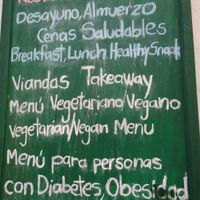 Desayuno, Almuerzo
Cenas Saludables
Breakfast, Lunch Healthy Snack
Viandas Takeaway
Menú Vegetariano/Vegano
Vegetarian/Vegan Menu
Menú para personas
con Diabetes, Obesidad